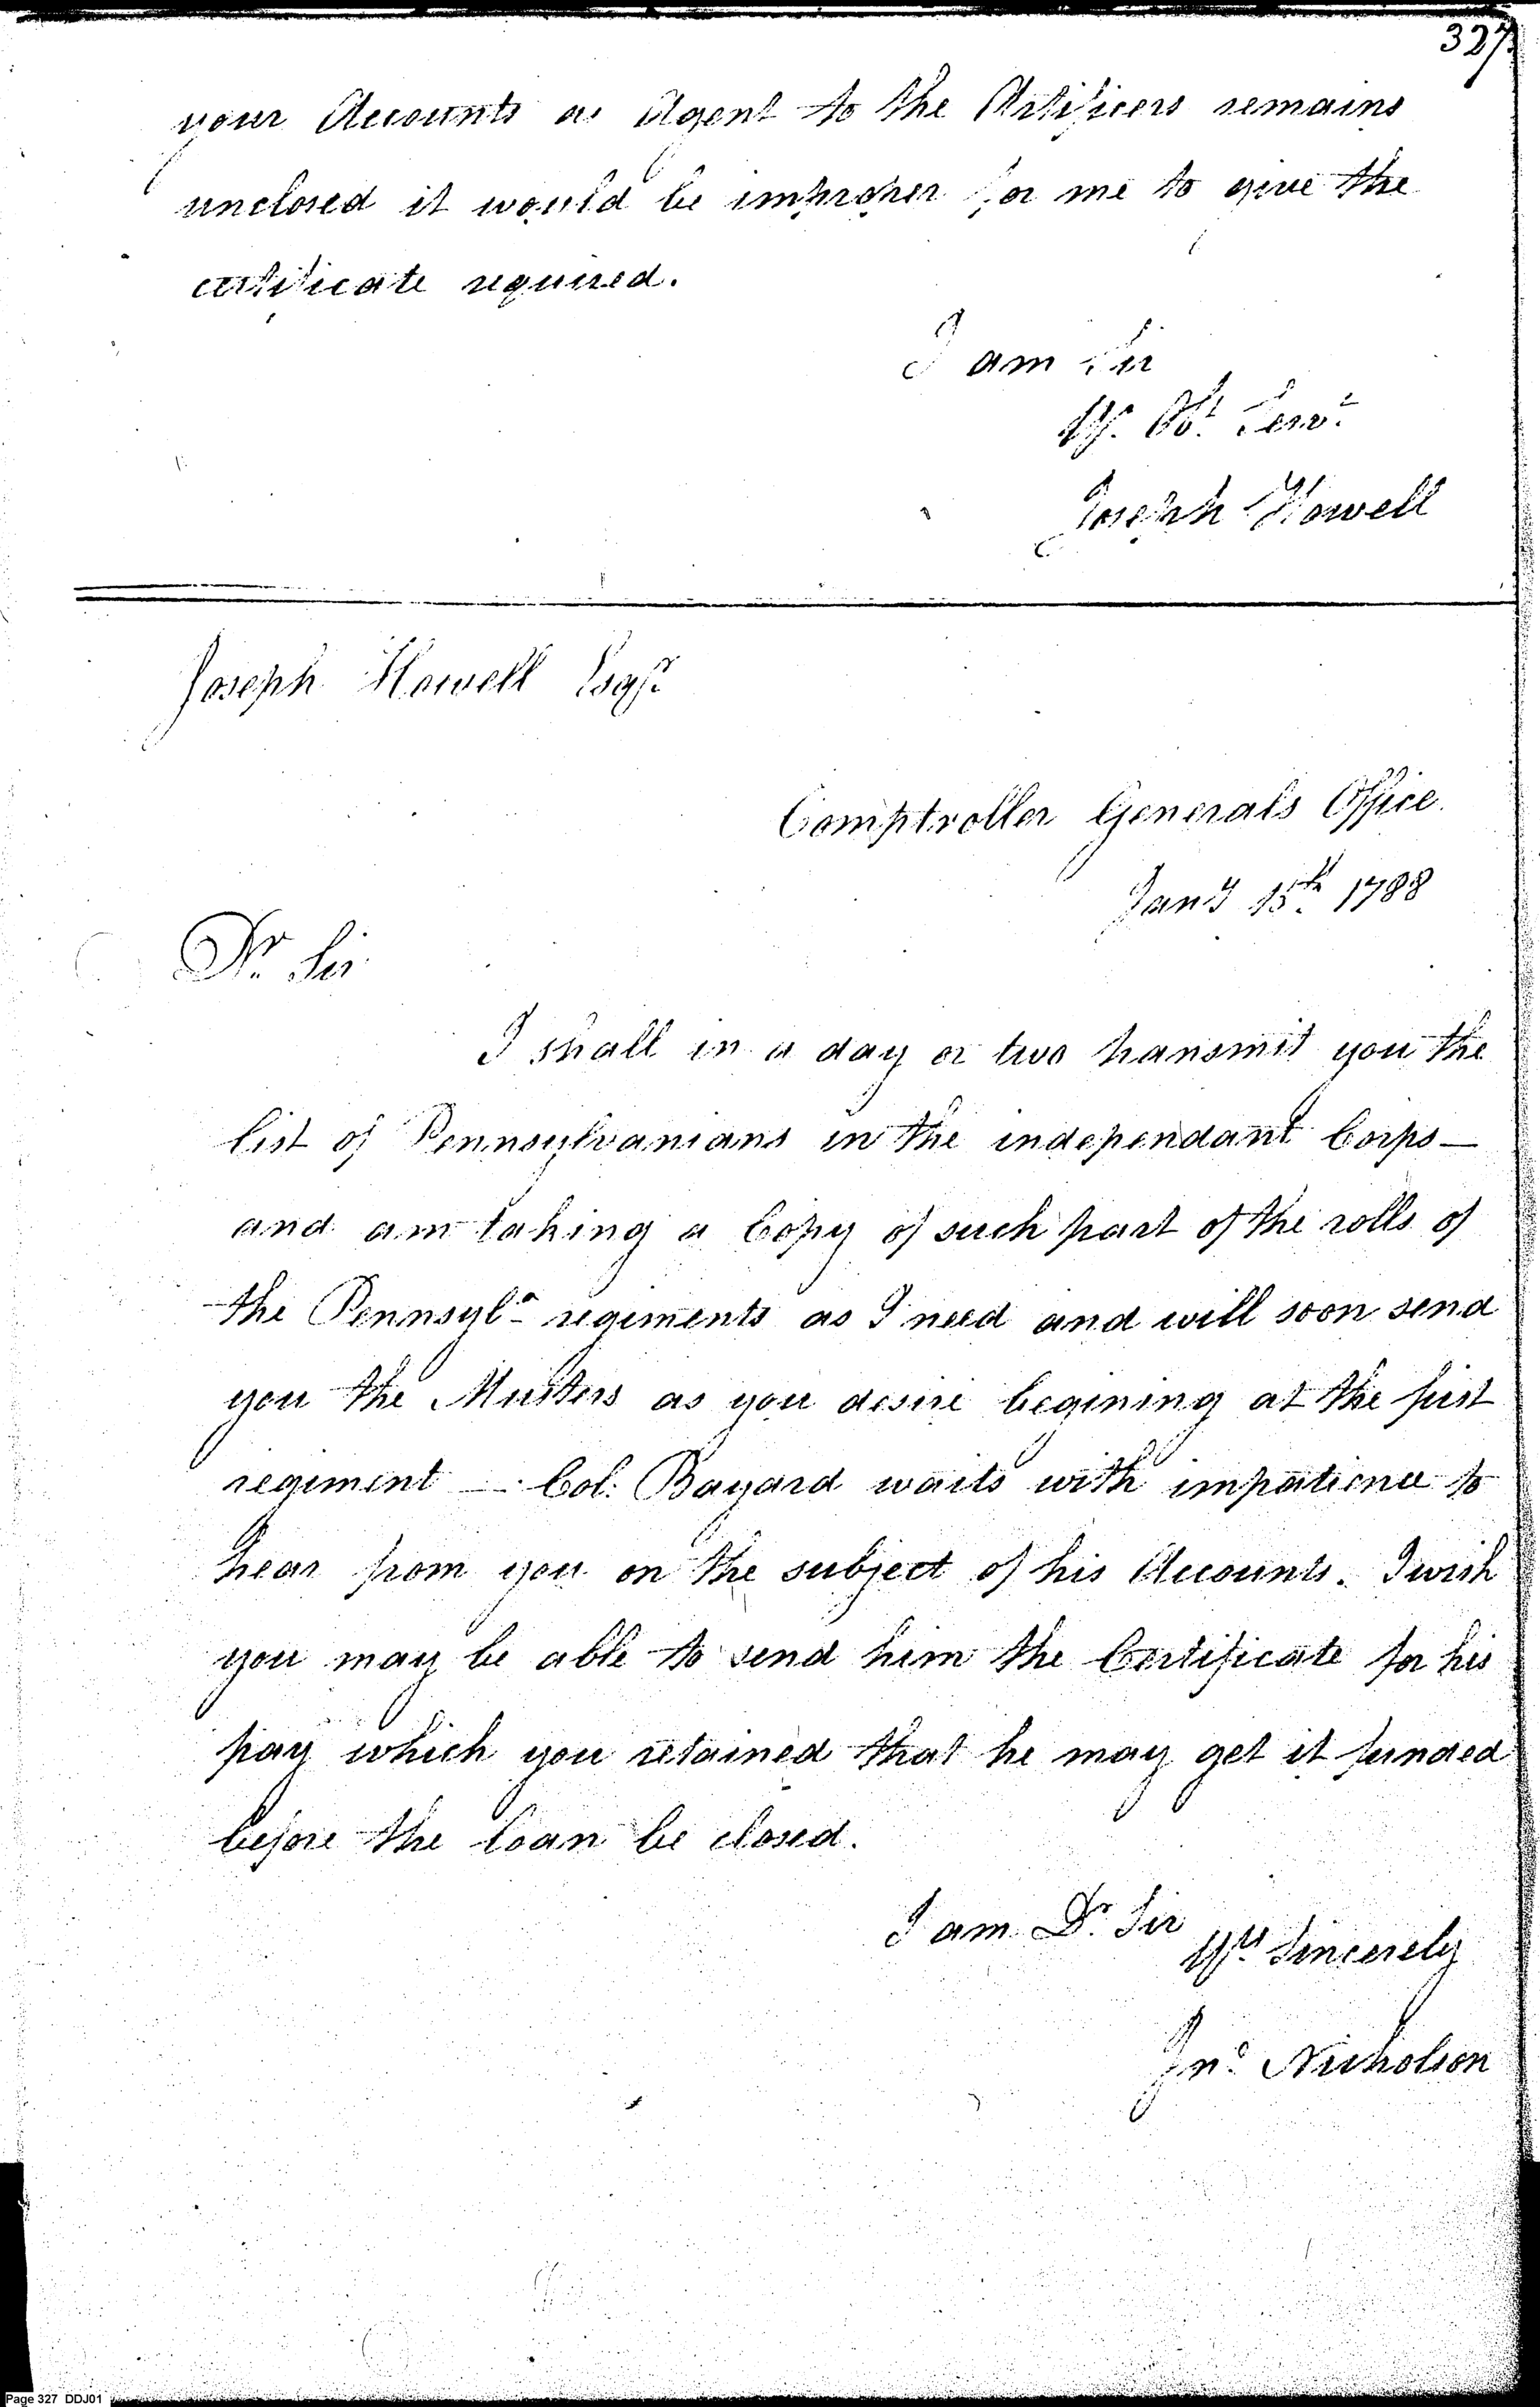 327
your Accounts as Agent to the Artificers remains
unclosed it would be improper for me to give the
certificate required.
I am Sir
Yr. Obt. Servt.
Joseph Howell
Joseph Howell Esqr.
Comptroller Generals Office
Jany 15th 1788
Dr. Sir
I shall in a day or two transmit you the
list of Pennsylvanians in the independant Corps —
and am taking a Copy of such part of the rolls of
the Pennsyla regiments as I need and will soon send
you the Musters as you desire begining at the first
regiment — Col. Bayard waits with impatience to
hear from you on the subject of his Accounts. I wish
you may be able to send him the Certificate for his
pay which you retained that he may get it funded
before the loan be closed.
I am Dr. Sir
Yrs. Sincerely
Jno. Nicholson
Page 327 DDJ01